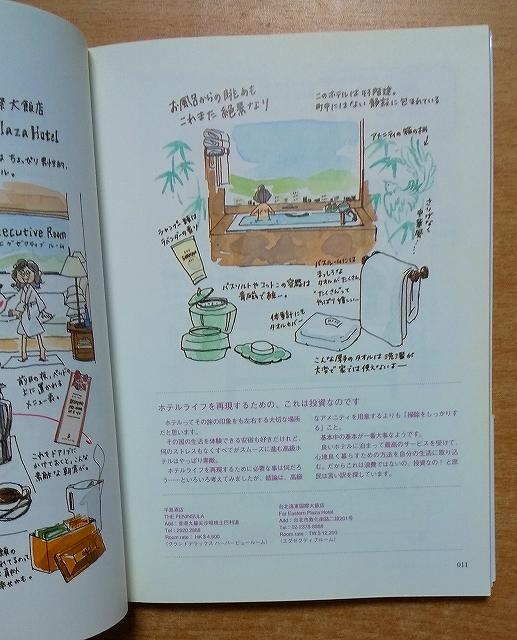 大飯店
Plaza Hotel
Executive Room
エグゼクティブルーム
前日の夜、ベッドの
上に置かれる
メニュー表。
これをドアノブに
かけておくと、こんな
素敵な朝食が。
お風呂からの眺めも
これまた絶景なり
このホテルは43階建。
町中にはない静寂に包まれている
アメニティの籠の柄
さりげなく
シャンプー類は
ラベンダーの香り
バスソルトやコットンこの容器は
青磁で統一。
バスルームには
まっしろな
タオルがたくさん。
"たくさん"って
やっぱり嬉しい。
体重計にも
タオルカバー
こんな厚手のタオルは洗濯が
大変で家では使えないよー
ホテルライフを再現するための、これは投資なのです
ホテルってその旅の印象をも左右する大切な場所
だと思います。
その国の生活を体験できる安宿も好きだけれど、
何のストレスもなくすべてがスムーズに進む高級ホ
テルはやっぱり素敵。
ホテルライフを再現するために必要な事は何だろ
う……といろいろ考えてみましたが、結論は、高級
なアメニティを用意するよりも「掃除をしっかりす
る」こと。
基本中の基本が一番大事なようです。
良いホテルに泊まって最高のサービスを受けて、
心地良く暮らすための方法を自分の生活に取り込
む。だからこれは浪費ではないの、投資なの！と庶
民は言い訳を探しています。
半島酒店
THE PENINSULA
Add：香港九龍尖沙咀梳士巴利道
Tel：2920.2888
Room rate：HK$4,600
(グランドデラックス ハーバービュールーム)
台北遠東國際大飯店
Far Eastern Plaza Hotel
Add：台北市敦化南路二段201号
Tel：02-2378-8888
Room rate：TW$12,200
(エグゼクティブルーム)
011